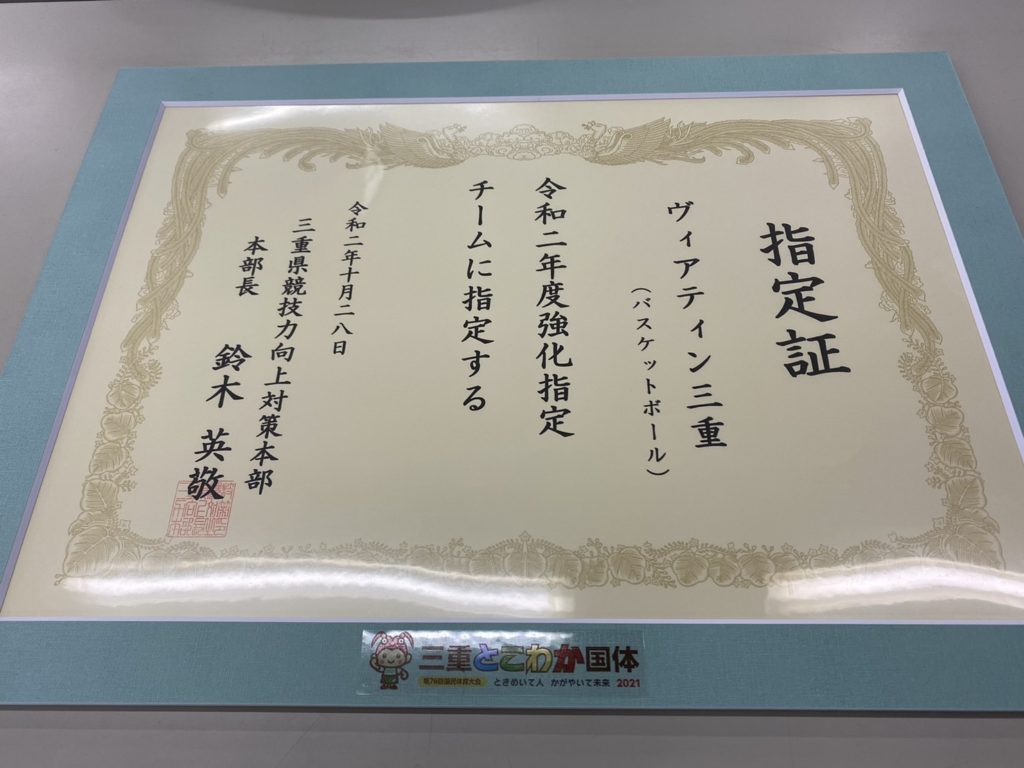 指定証
ヴィアティン三重
（バスケットボール）
令和二年度強化指定
チームに指定する
令和二年十月二八日
三重県競技力向上対策本部
本部長 鈴木 英敬
三重とこわか国体
第76回国民体育大会 ときめいて人 かがやいて未来 2021